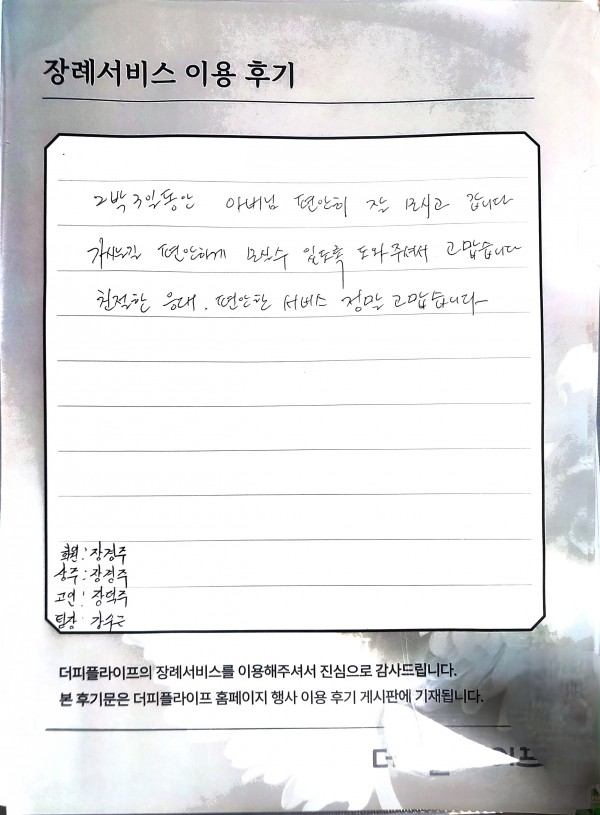 장례서비스 이용 후기
2박3일동안 아버님 편안히 잘 모시고 갑니다
가시는길 편안하게 모실수 있도록 도와주셔서 고맙습니다
친절한 응대. 편안한 서비스 정말 고맙습니다
회원: 장경주
상주: 장경주
고인: 장덕주
팀장: 강수근
더피플라이프의 장례서비스를 이용해주셔서 진심으로 감사드립니다.
본 후기문은 더피플라이프 홈페이지 행사 이용 후기 게시판에 기재됩니다.